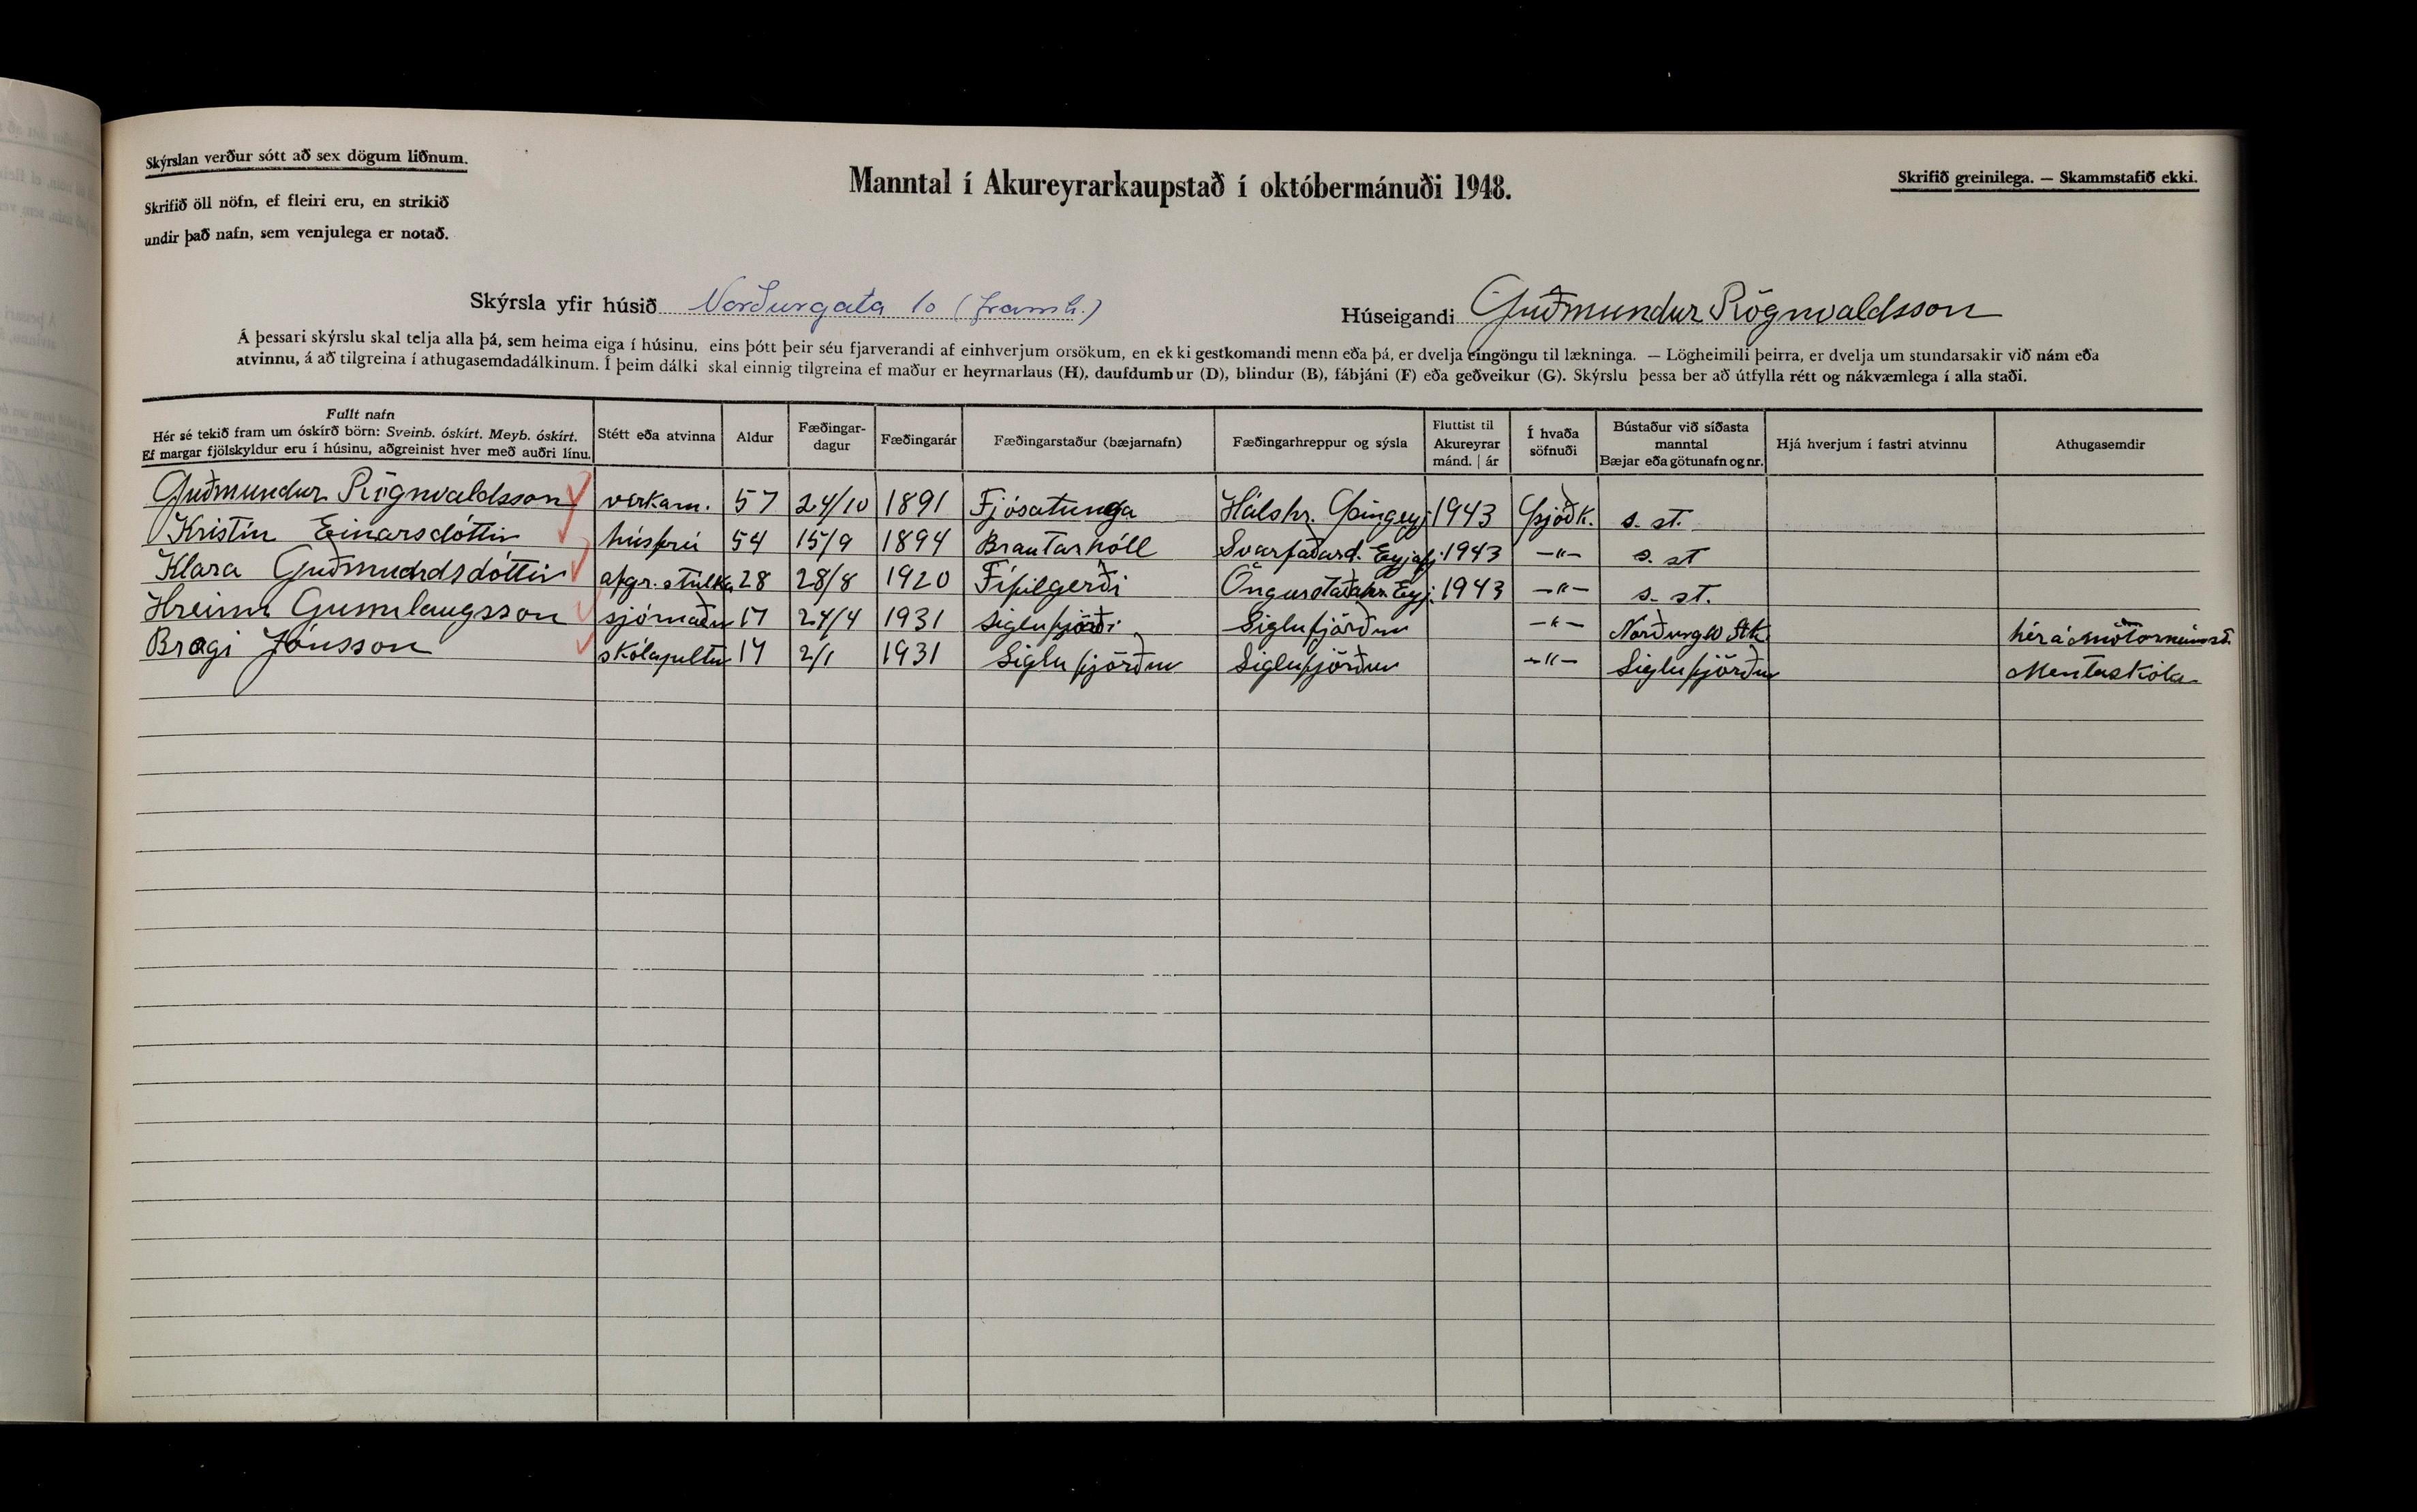 Skýrslan verður sótt að sex dögum liðnum.
Skrifið öll nöfn, ef fleiri eru, en strikið
undir það nafn, sem venjulega er notað.
Manntal í Akureyrarkaupstað í októbermánuði 1948.
Skrifið greinilega. — Skammstafið ekki.
Skýrsla yfir húsið Norðurgata 10 (framh.)
Húseigandi Guðmundur Rögnvaldsson
Á þessari skýrslu skal telja alla þá, sem heima eiga í húsinu, eins þótt þeir séu fjarverandi af einhverjum orsökum, en ekki gestkomandi menn eða þá, er dvelja eingöngu til lækninga. — Lögheimili þeirra, er dvelja um stundarsakir við nám eða
atvinnu, á að tilgreina í athugasemdadálkinum. Í þeim dálki skal einnig tilgreina ef maður er heyrnarlaus (H), daufdumbur (D), blindur (B), fábjáni (F) eða geðveikur (G). Skýrslu þessa ber að útfylla rétt og nákvæmlega í alla staði.
Fullt nafn
Hér sé tekið fram um óskírð börn: Sveinb. óskírt. Meyb. óskírt.
Ef margar fjölskyldur eru í húsinu, aðgreinist hver með auðri línu.
Stétt eða atvinna
Aldur
Fæðingar-
dagur
Fæðingarár
Fæðingarstaður (bæjarnafn)
Fæðingarhreppur og sýsla
Fluttist til
Akureyrar
mánd. | ár
Í hvaða
söfnuði
Bústaður við síðasta
manntal
Bæjar eða götunafn og nr.
Hjá hverjum í fastri atvinnu
Athugasemdir
Guðmundur Rögnvaldsson verkam. 57 24/10 1891 Fjósatunga Hálshr. Þingeyj 1943 Þjóðk. s. st.
Kristín Einarsdóttir húsfrú 54 15/9 1894 Brautarhóll Svarfaðard. Eyjafj. 1943 —"— s. st
Klara Guðmundsdóttir afgr. stúlka 28 28/8 1920 Fífilgerði Öngulstaðahr. Eyj. 1943 —"— s. st.
Hreinn Gunnlaugsson sjómaður 17 24/4 1931 Siglufjörði Siglufjörður —"— Norðurg 10 Stk.
Bragi Jónsson skólapiltur 17 2/1 1931 Siglufjörður Siglufjörður —"— Siglufjörður Mentaskóla